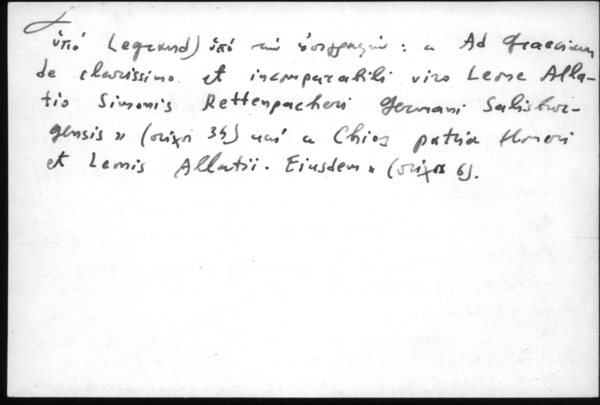 ὑπό Legrand) ὑπό τήν ἐπιγραφήν: « Ad Graeciam
de clarissimo et incomparabili viro Leone Alla-
tio Simonis Rettenpacheri Germani Salisbur-
gensis » (στίχοι 34) καί « Chios patria Homeri
et Leonis Allatii. Eiusdem » (στίχοι 6).